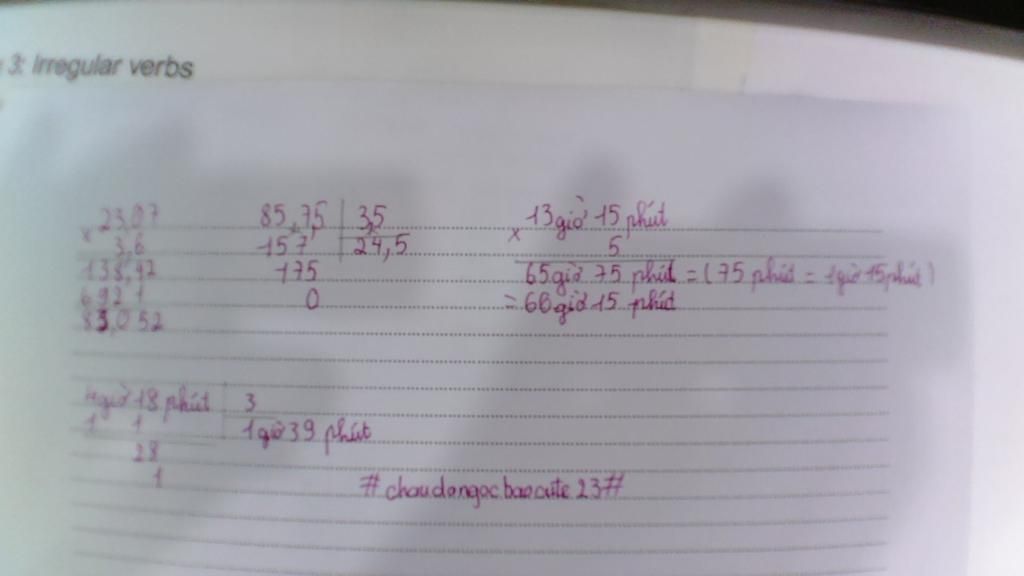 3: Irregular verbs
23,07
x
3,6
138,42
692 1
83,052
85,75 | 3,5
157 24,5
175
0
13 giờ 15 phút
x
5
65 giờ 75 phút = (75 phút = 1 giờ 15 phút)
= 66 giờ 15 phút
4 giờ 18 phút | 3
1 1 1 giờ 39 phút
28
1
#chaudongocbaocute 23#